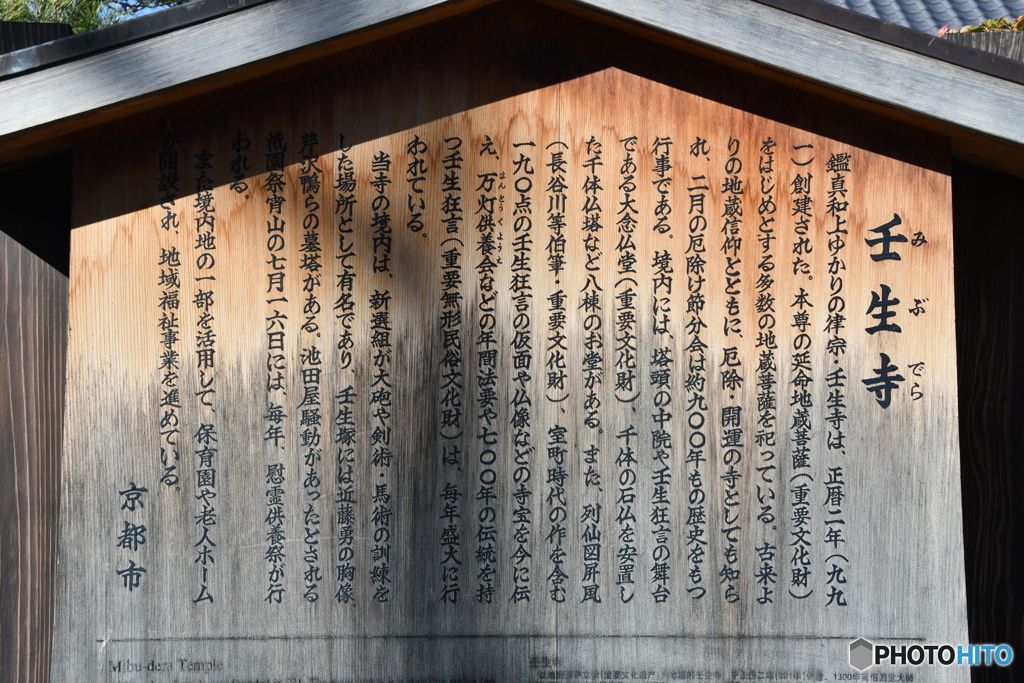 壬生寺
みぶでら
鑑真和上ゆかりの律宗・壬生寺は、正暦二年(九九
一)創建された。本尊の延命地蔵菩薩(重要文化財)
をはじめとする多数の地蔵菩薩を祀っている。古来よ
りの地蔵信仰とともに、厄除・開運の寺としても知ら
れ、二月の厄除け節分会は約九〇〇年もの歴史をもつ
行事である。境内には、塔頭の中院や壬生狂言の舞台
である大念仏堂(重要文化財)、千体の石仏を安置し
た千体仏塔など八棟のお堂がある。また、列仙図屏風
(長谷川等伯筆・重要文化財)、室町時代の作を含む
一九〇点の壬生狂言の仮面や仏像などの寺宝を今に伝
え、万灯供養会などの年間法要や七〇〇年の伝統を持
まんとうくようえ
つ壬生狂言(重要無形民俗文化財)は、毎年盛大に行
われている。
当寺の境内は、新選組が大砲や剣術・馬術の訓練を
した場所として有名であり、壬生塚には近藤勇の胸像、
芹沢鴨らの墓塔がある。池田屋騒動があったとされる
祇園祭宵山の七月一六日には、毎年、慰霊供養祭が行
われる。
また境内地の一部を活用して、保育園や老人ホーム
が開設され、地域福祉事業を進めている。
京都市
Mibu-dera Temple
壬生寺
PHOTOHITO